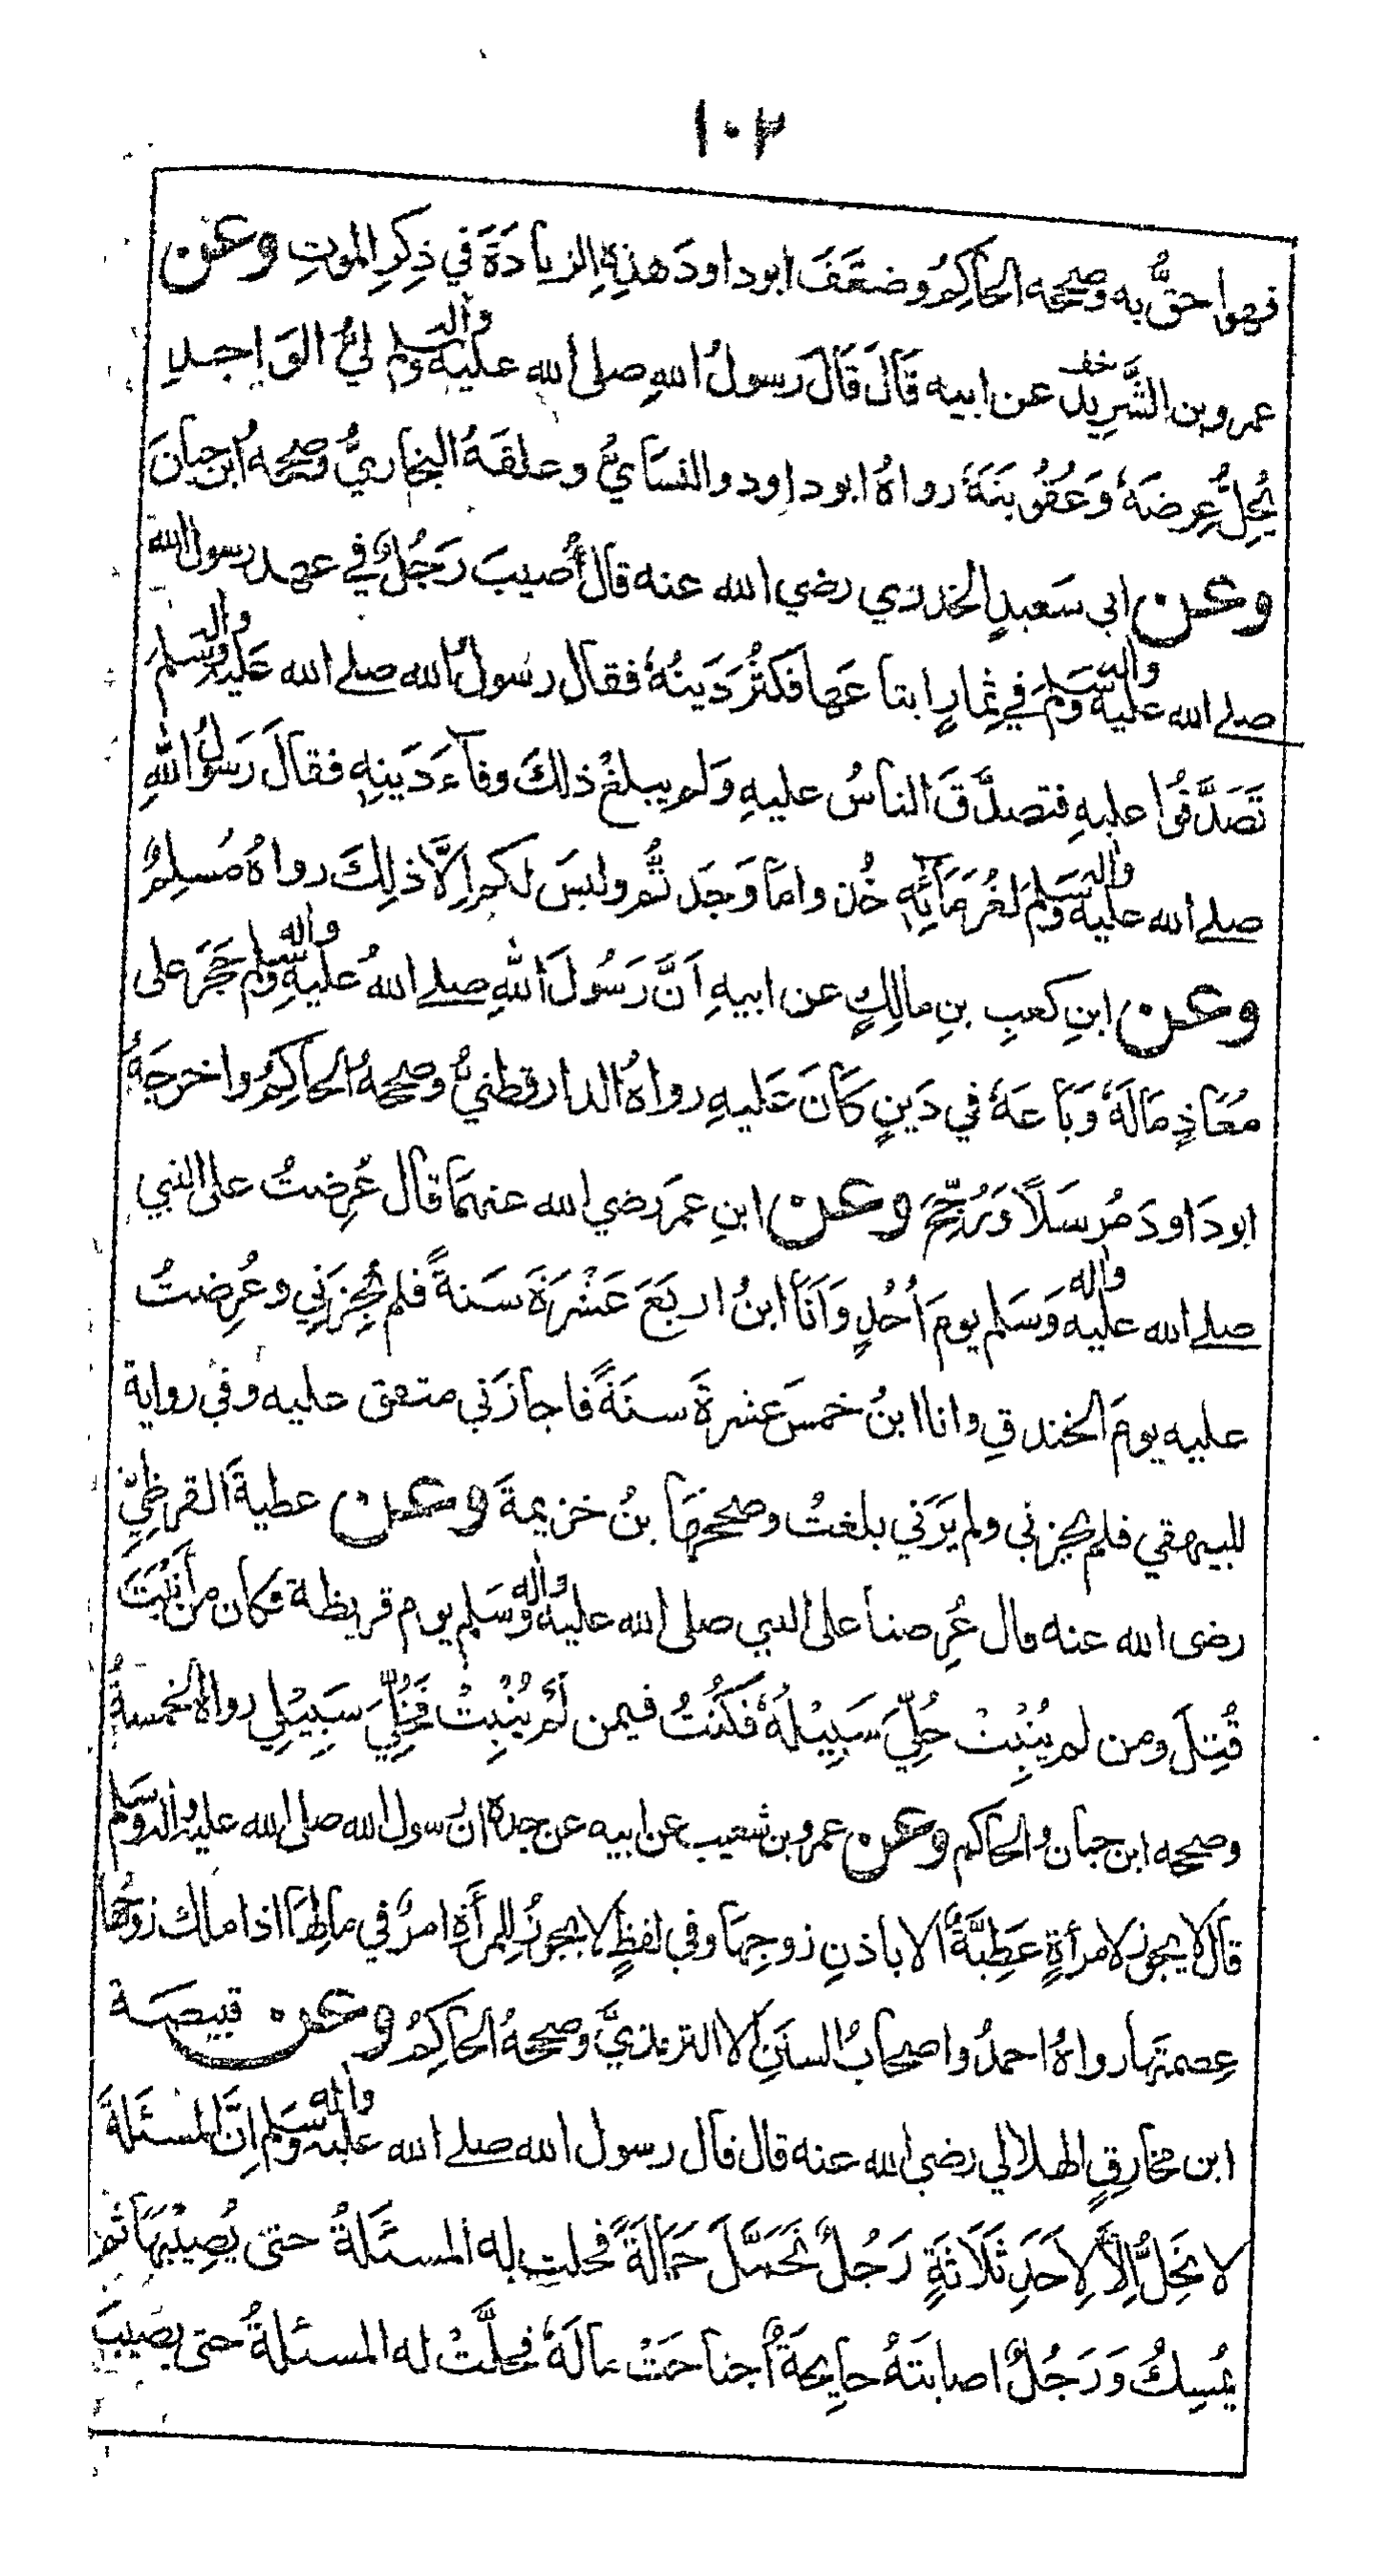 ١٠٢
فهو احقُّ به وصححه الحاكِمُ وضعَّفَ ابوداودَ هذِهِ الزيادَةَ في ذِكرِ الموتِ وعن
عمروبن الشَّرِيدِ عن ابيه قَالَ قَالَ رَسولُ اللهِ صلى الله عليه واله وسلم لَيُّ الوَاجِدِ
يُحِلُّ عِرضَهٗ وَعُقُوبَتَهٗ رواهُ ابوداود والنسَايُّ وعلقَهُ البخاريُّ وصححهُ ابن حبانَ
وعن ابى سَعيدٍ الخدري رضي الله عنه قال أُصيبَ رَجُلٌ في عهد رسول الله
صلے الله عليه واله وسلمَ في ثِمارٍ ابتاعَها فكثُر دَينُهٗ فقال رسُولُ الله صلے الله عَليهِ واله وسلم
تَصَدَّقُوا عليهِ فتصدَّقَ الناسُ عليهِ وَلم يبلغْ ذٰلكَ وفآءَ دَينِهٖ فقالَ رَسُولُ اللهِ
صلے الله عليه واله وسلم لغُرَمَآئِهٖ خُذواما وَجَدتُّم وليسَ لكم اِلَّا ذٰلِكَ رواهُ مُسلِمٌ
وعن ابنِ كعبِ بنِ مالِكٍ عن ابيهِ اَنَّ رَسُولَ اللهِ صلے اللهُ عليهِ واله وسلم حَجَرَ على
مُعَاذٍ مَالَهٗ وَبَاعَهٗ في دَينٍ كَانَ عَليهِ رواهُ الدارقطنيُّ وصححهُ الحاكِمُ واخرجَهٗ
ابودَاودَ مُرسَلًا وَرُجِّحَ وعن ابنِ عمرَ رضي الله عنهمَا قال عُرِضتُ على النبي
صلے الله عليه واله وَسَلم يومَ اُحُدٍ وَاَنَا ابنُ اربَعَ عَشْرَةَ سَنةً فلم يُجِزنِي وعُرِضتُ
عليه يومَ الخندقِ وانا ابنُ خمسَ عشرةَ سنَةً فاجازَني متفق عليه وفي رواية
للبيهقي فلم يجزني ولم يَرَني بلغتُ وصححهَا بنُ خزيمةَ وعن عطيةَ القرظيِّ
رضى الله عنه قال عُرِضنا على النبي صلى الله عليه واله وَسَلم يوم قريظة فكان من أَنْبَتَ
قُتِلَ ومن لم يُنْبِتْ خُلِّيَ سَبِيْلُهٗ فكُنتُ فيمن لَم يُنْبِتْ فَخُلِّيَ سَبِيْلِي رواه الخمسةُ
وصححه ابن حبان والحاكم وعن عمروبن شعيب عن ابيه عن جده ان رسول الله صلى الله عليه واله وسلم
قال لا يجوز لامرأةٍ عَطِيَّةٌ الا باذنِ زوجِهَا وفي لفظٍ لا يجوزُ للمرأَةِ امرٌ في مالِهَا اذا ملك زوجُها
عِصمتَها رواهُ احمدُ واصحابُ السنَنِ الا الترمذيَّ وصححهُ الحاكِمُ وعن قبيصة
ابن مخارقٍ الهلالي رضي الله عنه قال قال رسول الله صلے الله عليه واله وسلم اِنَّ المسئَلةَ
لا تحِلُّ اِلَّا لِاَحَدِ ثَلَاثَةٍ رَجُلٌ تحَمَّلَ حَمَالَةً فحلت له المسئَلةُ حتى يُصِيْبَهَا ثم
يُمسِكُ وَرَجُلٌ اصابتهُ جايحَةٌ اجتاحَتْ مالَهٗ فحلَّتْ له المسئلةُ حتى يصيبَ